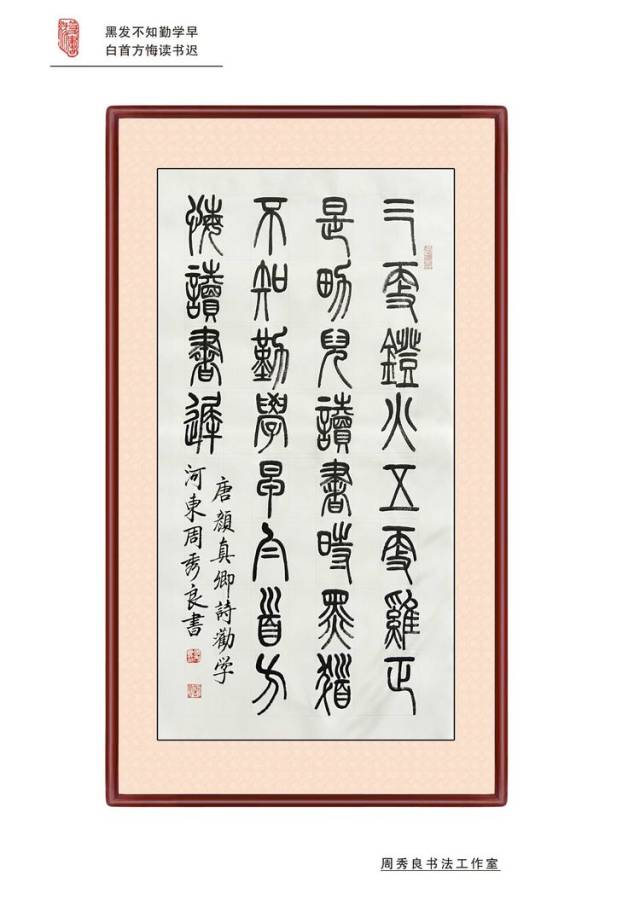 黑发不知勤学早
白首方悔读书迟
三更鐙火五更雞正
是男兒讀書時黑髮
不知勤學早白首方
悔讀書遲
唐顔真卿詩勸学
河東周秀良書
周秀良书法工作室